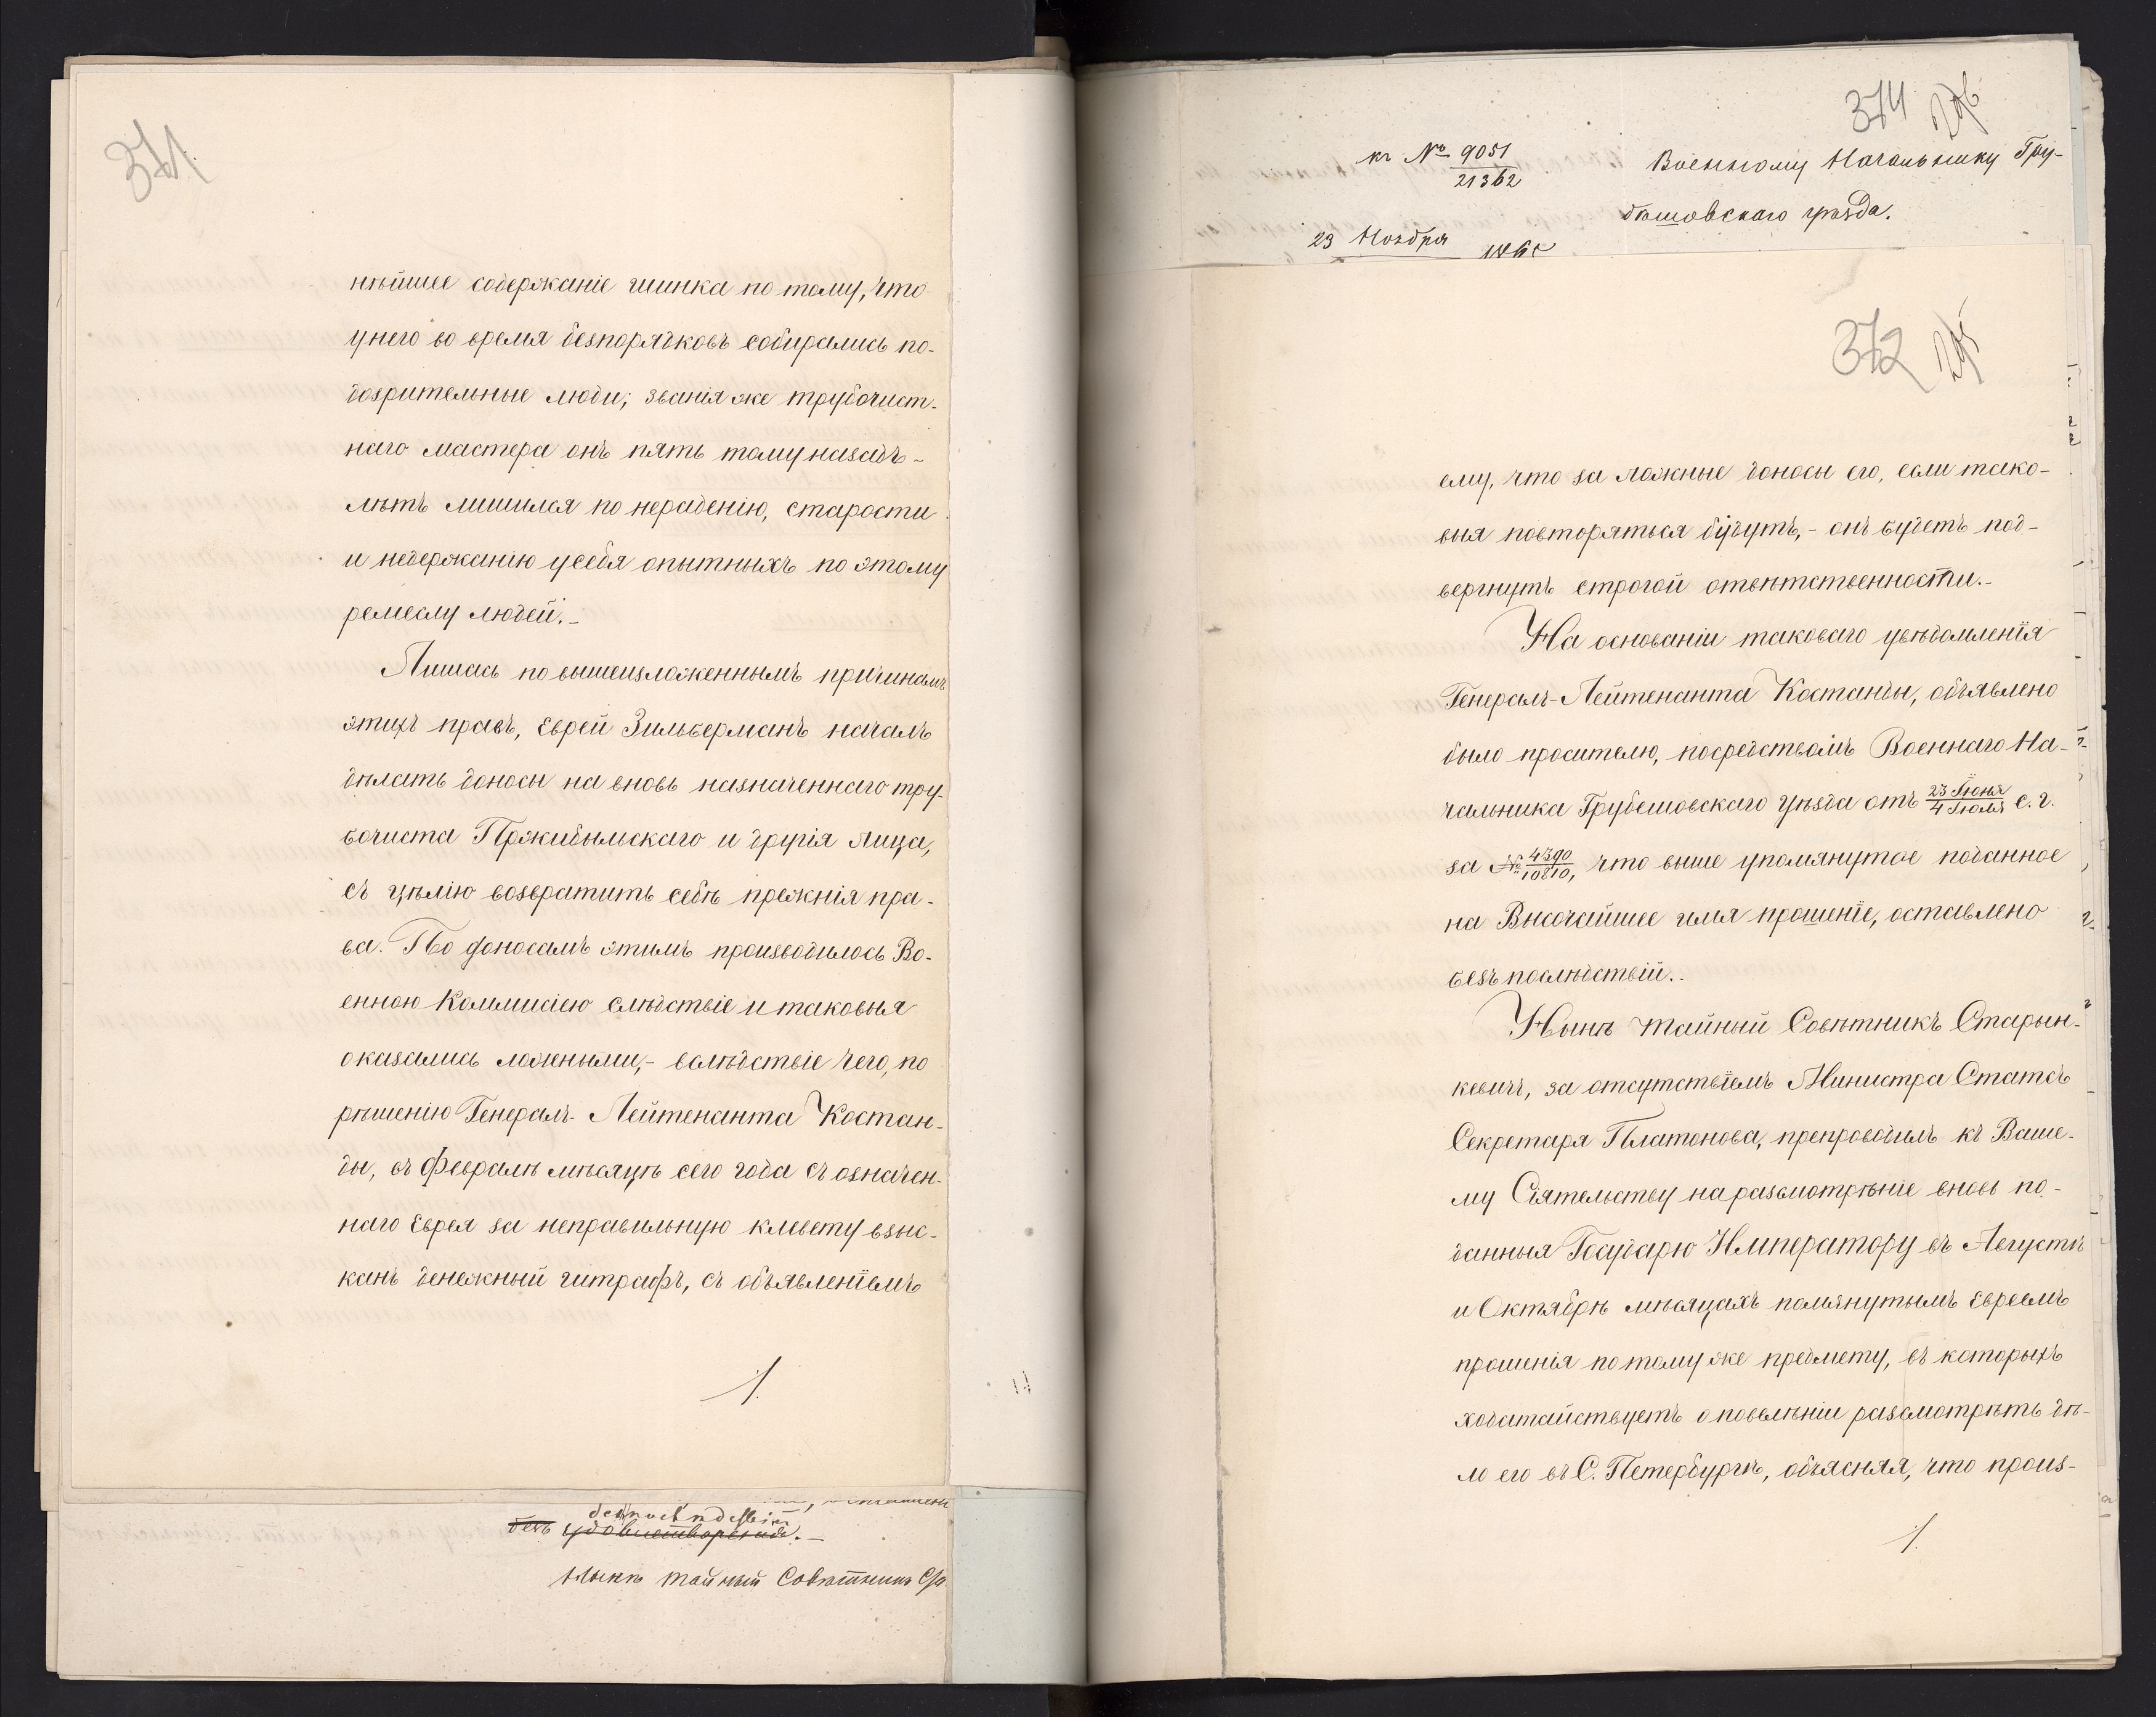 371
нѣйшее содержаніе шинка по тому, что
у него во время безпорядковъ собирались по-
дозрительные люди; званія же трубочист-
наго мастера онъ пять тому назадъ-
лѣтъ лишился по нерадѣнію, старости
и недержанію у себя опытныхъ по этому
ремеслу людей.-
Лишась по вышеизложеннымъ причинамъ
этихъ правъ, Еврей Зильберманъ началъ
дѣлать доносы на вновь назначеннаго тру-
бочиста Пржибыльскаго и другія лица,
съ цѣлію возвратить себѣ прежнія пра-
ва. По доносамъ этимъ производилось Во-
енною Коммисіею слѣдствіе и таковыя
оказались ложными,- вслѣдствіе чего, по
рѣшенію Генералъ-Лейтенанта Костан-
ды, въ Февралѣ мѣсяцѣ сего года съ означен-
наго Еврея за неправильную клевету взыс-
канъ денежный штрафъ, съ объявленіемъ
безъ удовлетворенія.-
Нынѣ Тайный Совѣтникъ Ст
374
къ № 9051
21362
Военному Начальнику Гру-
бешовскаго уѣзда.
23 Ноября 1865
372
ему, что за ложные доносы его, если тако-
выя повторяться будутъ,- онъ будетъ под-
вергнутъ строгой отвѣтственности.-
На основаніи таковаго увѣдомленія
Генералъ-Лейтенанта Костанды, объявлено
было просителю, посредствомъ Военнаго На-
чальника Грубешовскаго уѣзда отъ 23 Іюня/4 Іюля с. г.
за № 4390/10810, что выше упомянутое поданное
на Высочайшее имя прошеніе, оставлено
безъ послѣдствій.-
Нынѣ Тайный Совѣтникъ Старын-
кевичъ, за отсутствіемъ Министра Статсъ
Секретаря Платонова, препроводилъ къ Ваше-
му Сіятельству на разсмотрѣніе вновь по-
данныя Государю Императору въ Августѣ
и Октябрѣ мѣсяцахъ помянутымъ Евреемъ
прошенія по тому же предмету, въ которыхъ
ходатайствуетъ о повелѣніи разсмотрѣть дѣ-
ло его въ С. Петербургѣ, объясняя, что произ-